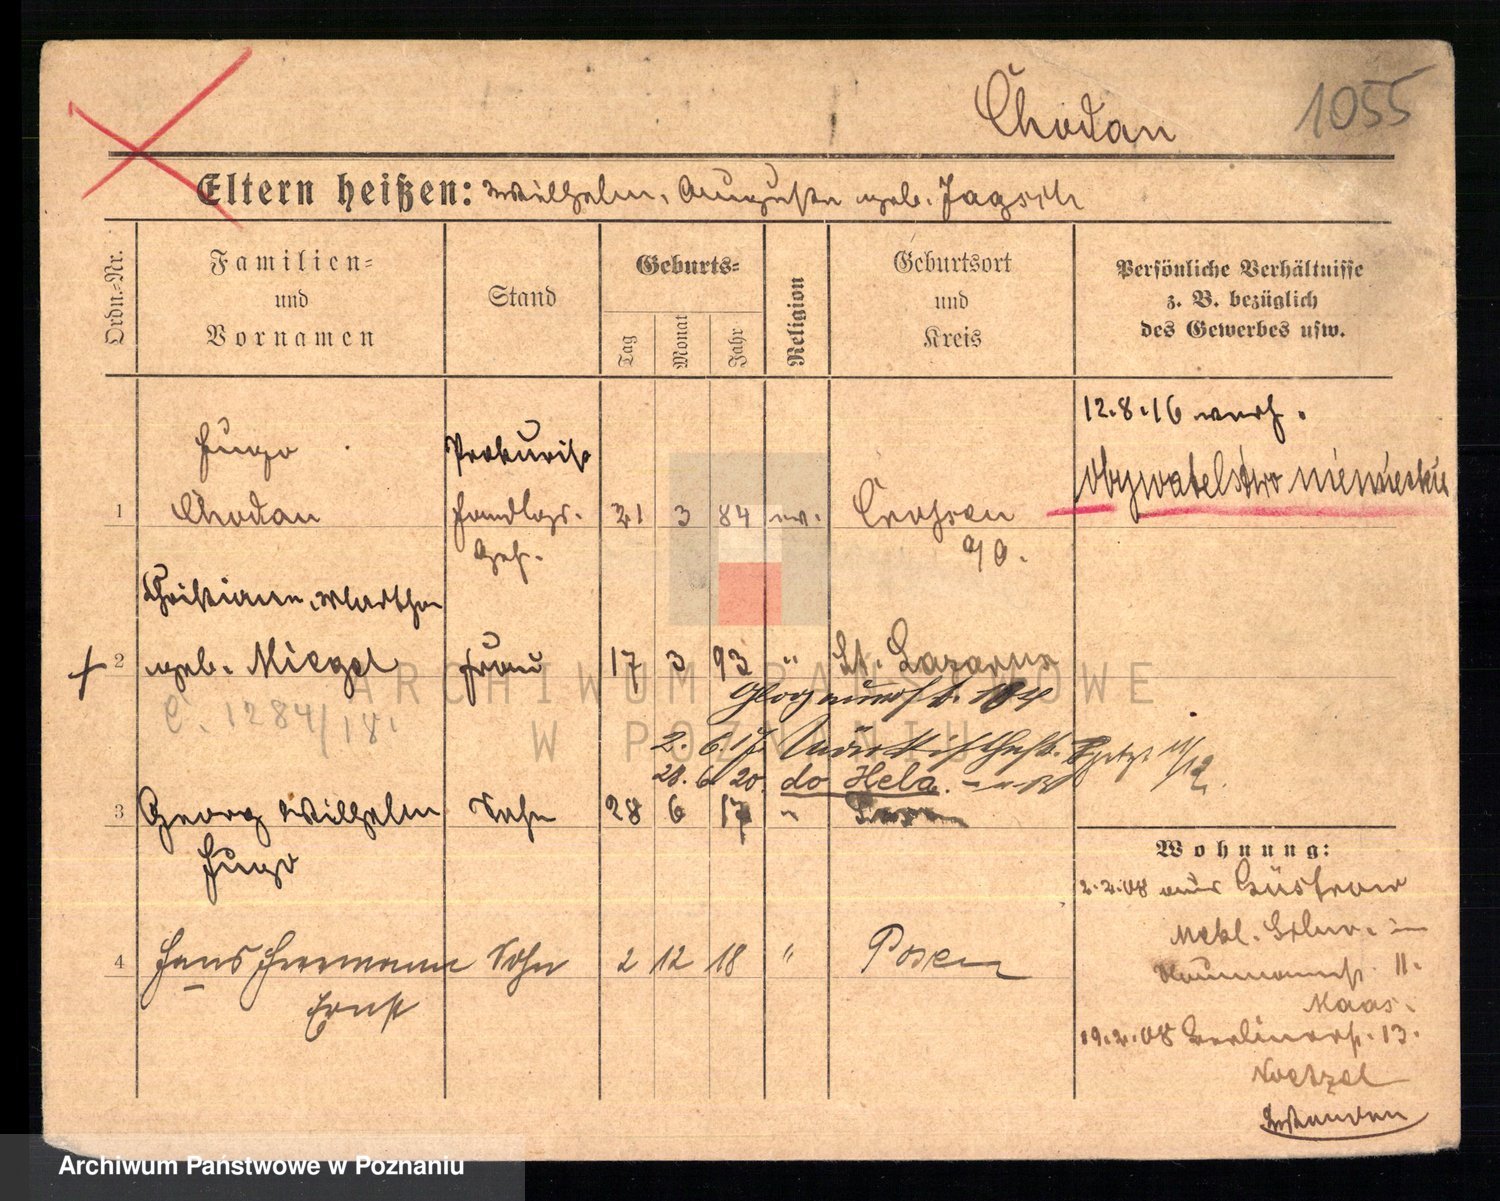 Chodan 1055
Eltern heißen: Wilhelm, Auguste geb. Jagsch
Ordn.-Nr.
Familien-
und
Vornamen
Stand
Geburts-
Tag
Monat
Jahr
Religion
Geburtsort
und
Kreis
Persönliche Verhältnisse
z. B. bezüglich
des Gewerbes usw.
12.8.16 verh.
obywatelstwo niemieckie
Hugo Prokurist
1 Chodan Handlgs. 21 3 84 ev. Crossen
Geh. a/O.
Christiane, Martha
2 geb. Miegel Frau 17 3 93 " St. Lazarus
C. 1284/18.
2. 6. 17
28. 6 20. do Hela.
3 Georg Wilhelm Sohn 28 6 17 "
Hugo
4 Hans Herrmann Sohn 2 12 18 " Posen
Ernst
Wohnung:
2.2.08 aus Güstrow
Mekl. Schw. in
Naumannst. 11.
Maas.
19.2.08 Berlinerst. 13.
Noetzel
ARCHIWUM PAŃSTWOWE
W POZNANIU
Archiwum Państwowe w Poznaniu